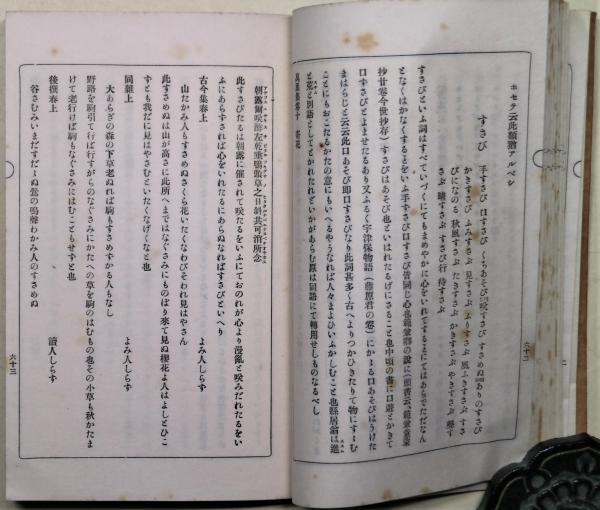 ホセテ云此類猶アルベシ
すさび 手すさび 口すさび くちあそび 咲すさび すさめぬ ありのすさび
かきすさび ふみすさぶ 見すさぶ よりすさぶ 風ふきすさぶ すさ
びになのる 秋風すさぶ たきすさぶ かきすさぶ やきすさぶ 懸す
さぶ 晴すさぶ すさび行 待すさぶ
すさびといふ詞はすべていづくにてもまめやかに心をいれてするまにてはあらでただなん
となくはかなくするとをいふ手すさび口すさび皆同じ心也
の說に
すさびはあそび也といはれたるげにさること也中頃の書に口遊とかきて
口すさびとよませたるあり又ふるく宇津保物語(藤原君の卷)にかゝる口あそびはうけた
まはらじと云云此口あそび即口すさびなり此詞甚多く古へよりつかひきたりて物にすゝむ
ことにもおこたるかたの意にもいへるやうなれば人々まよひいぶかしむこと也縣居翁は進
と荒と別語としてとかれたれどいかがあらむ原は同語にて轉用せしものなるべし
萬葉集卷十
六十二
朝露爾咲酢左乾垂鴨頭草之日斜共可消所念
此すさびたるは朝露に催されて咲たるをいふにておのれが心より漫亂と咲みだれたるをい
ふにあらずされば心をいれたるにあらぬなればすさびといへり
古今集春上 よみ人しらす
山たかみ人もすさめぬさくら花いたくなわびそわれ見はやさん
此すさめぬは山が高さに此所へまではなぐさみにものぼり來て見ぬ櫻花よ人はよしとひこ
ずとも我だに見はやさむといたくなげくなと也
同雜上 よみ人しらす
大あらぎの森の下草老ぬれば駒もすさめずかる人もなし
野路を駒引て行ば行すがらのなぐさみにかたへの草を駒のはむもの也その小草も秋かたま
けて老行けば駒もなぐさみにはむこともせずと也
後撰春上 讀人しらす
谷さむみいまだすだゝぬ鶯の鳴聲わかみ人のすさめぬ
六十三